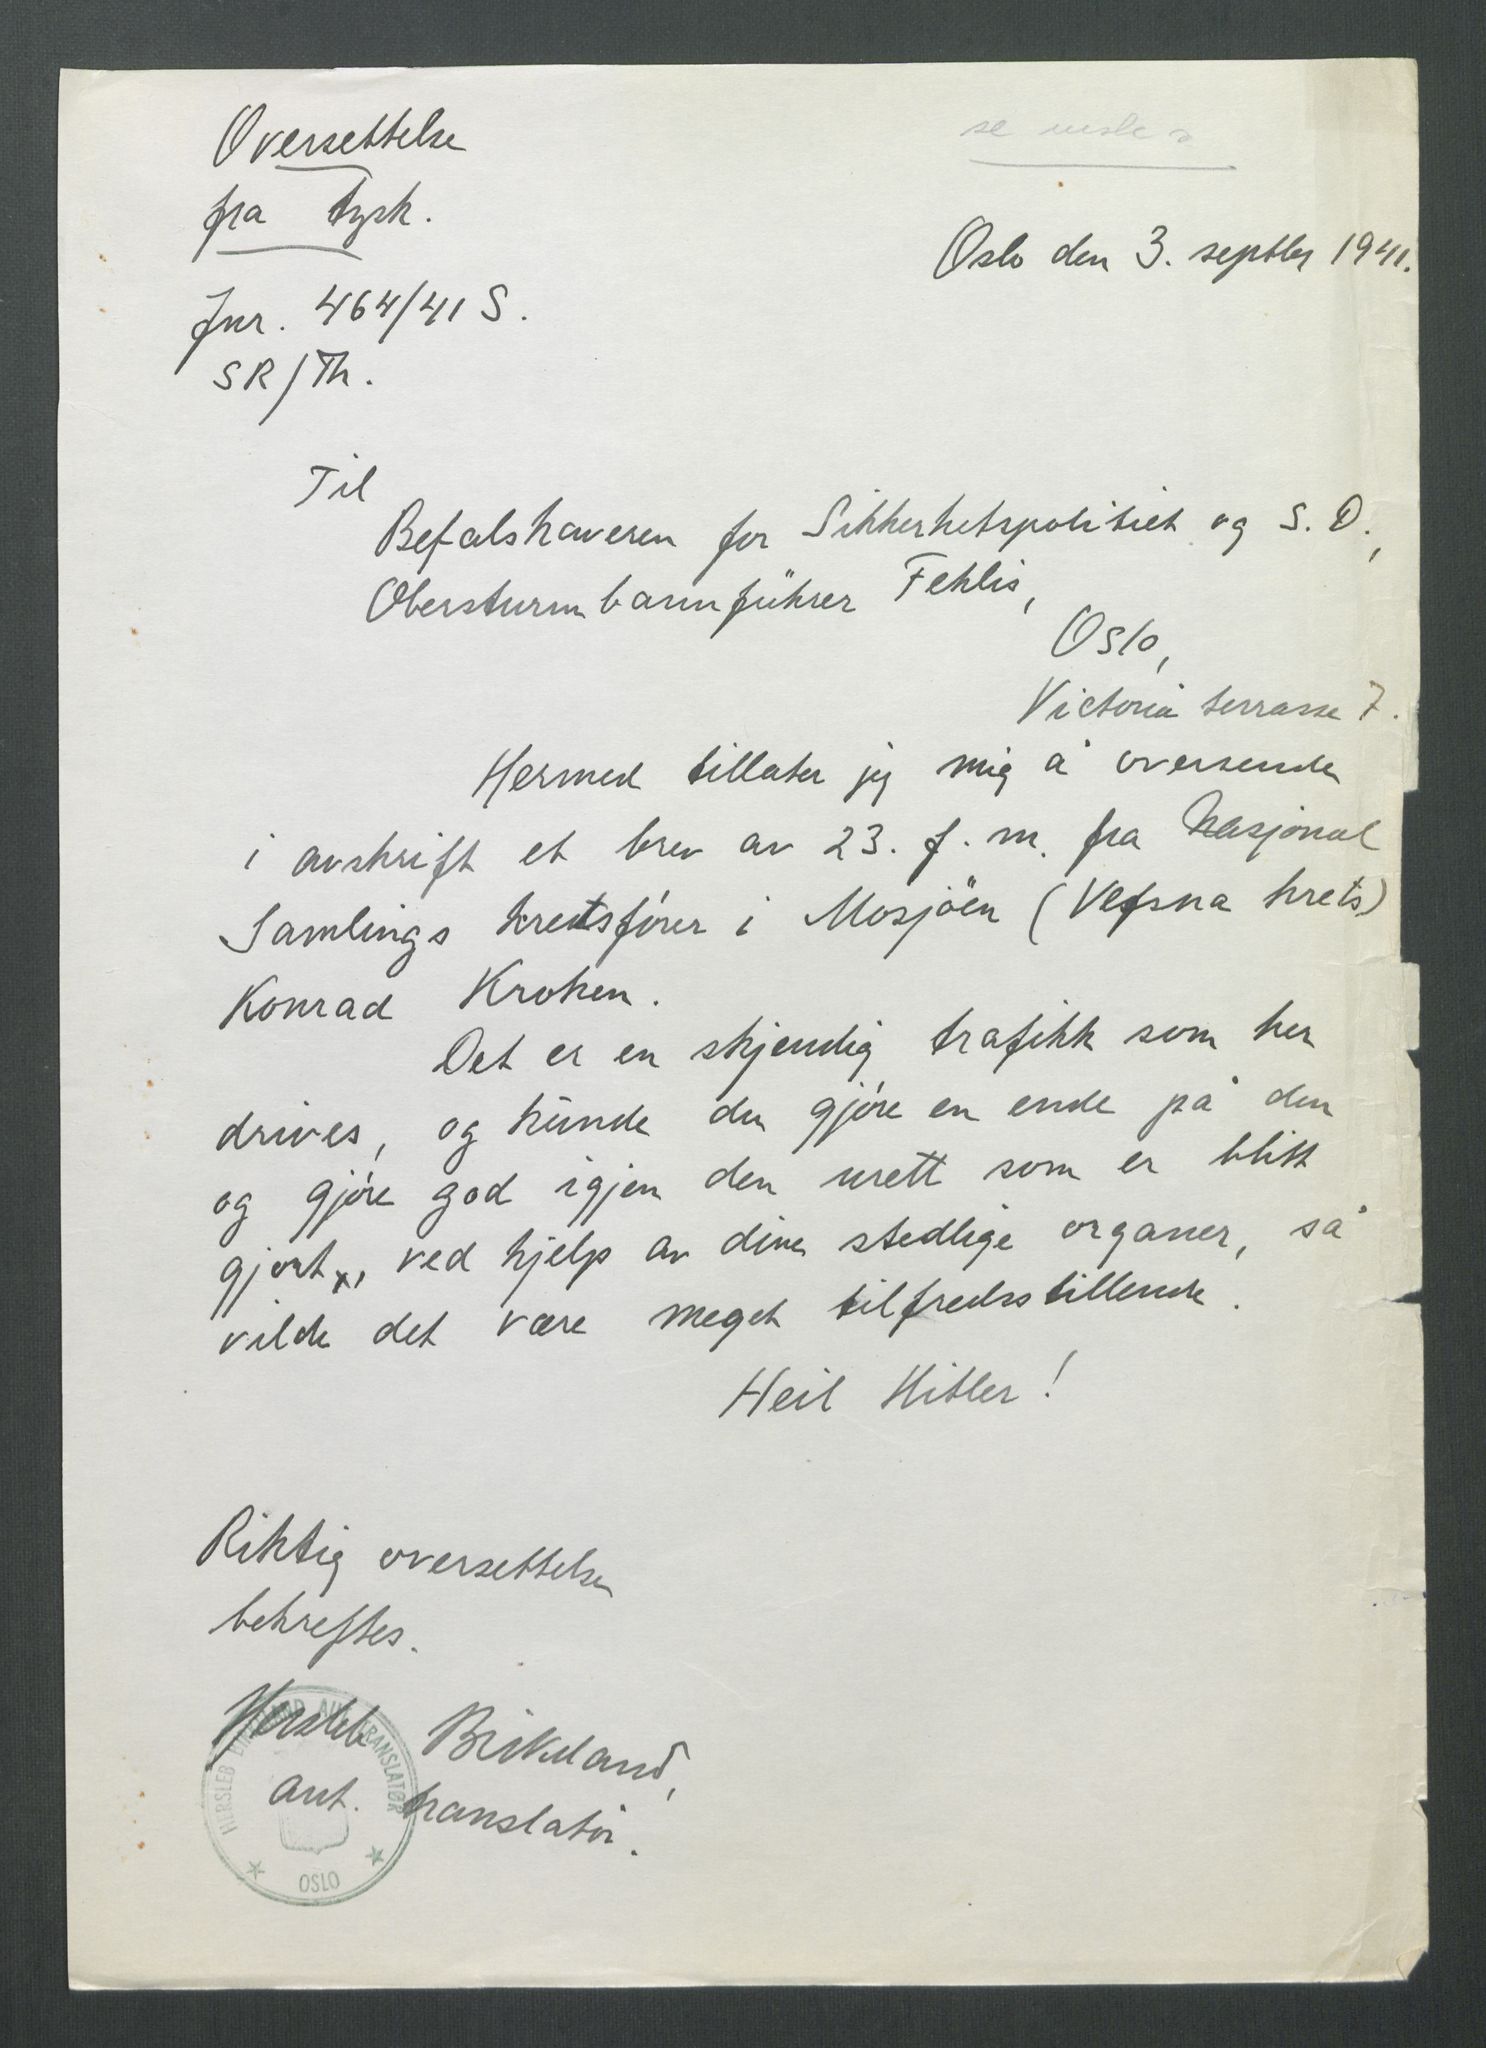 Oversettelse
fra tysk.
Jnr. 464/41 S.
SR/Th.
Oslo den 3. septbr 1941.
Til
Befalshaveren for Sikkerhetspolitiet og S.D.,
Obersturmbannführer Fehlis,
Oslo,
Victoria terrasse 7.
Hermed tillater jeg mig å oversende
i avskrift et brev av 23. f.m. fra Nasjonal
Samlings kretsfører i Mosjöen (Vefsna krets)
Konrad Kroken.
Det er en skjendig trafikk som her
drives, og kunde du gjøre en ende på den
og gjøre god igjen den urett som er blitt
gjort, ved hjelp av dine stedlige organer, så
vilde det være meget tilfredsstillende.
Heil Hitler!
Riktig oversettelse
bekreftes.
Hersleb Birkeland,
aut. translatör.
HERSLEB BIRKELAND AUT. TRANSLATØR
OSLO